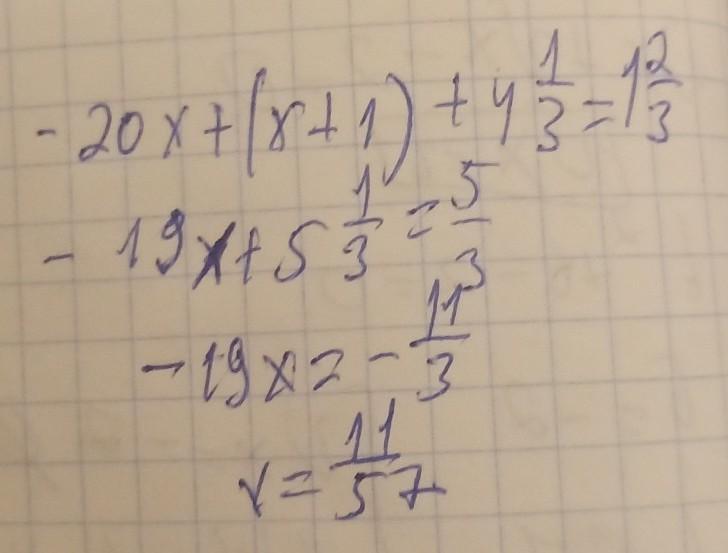 -20x+(x+1)+4 1/3=1 2/3
-19x+5 1/3=5/3
-19x=-11/3
x=11/57